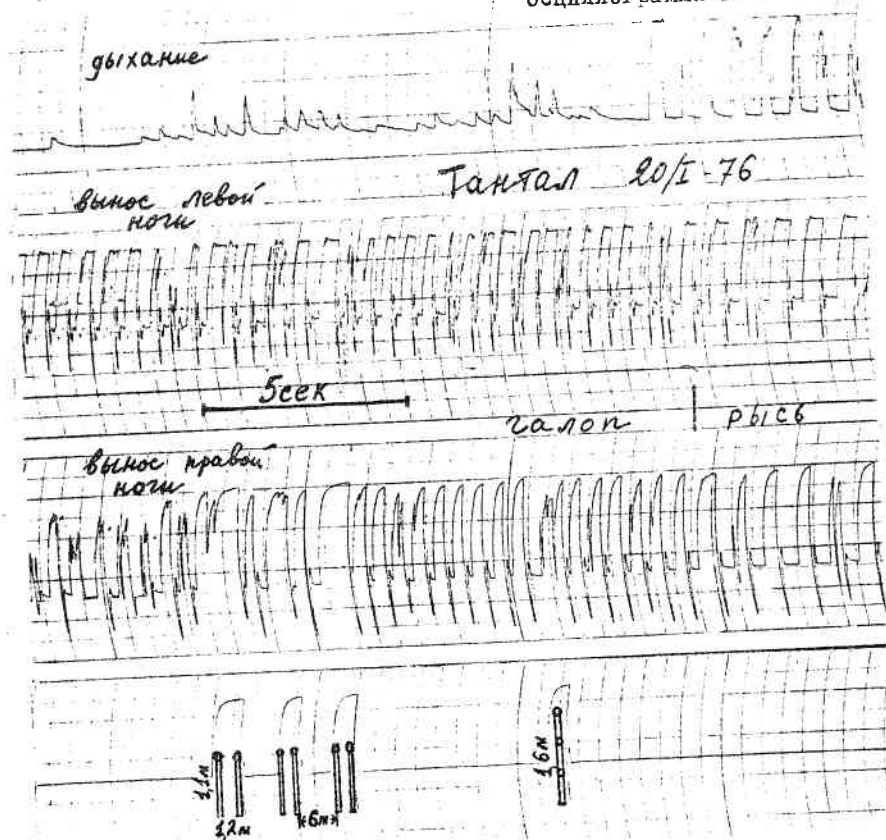 дыхание
Тантал 20/I-76
вынос левой
ноги
5сек
галоп
рысь
вынос правой
ноги
1,1м
1,2м
6м
1,6м